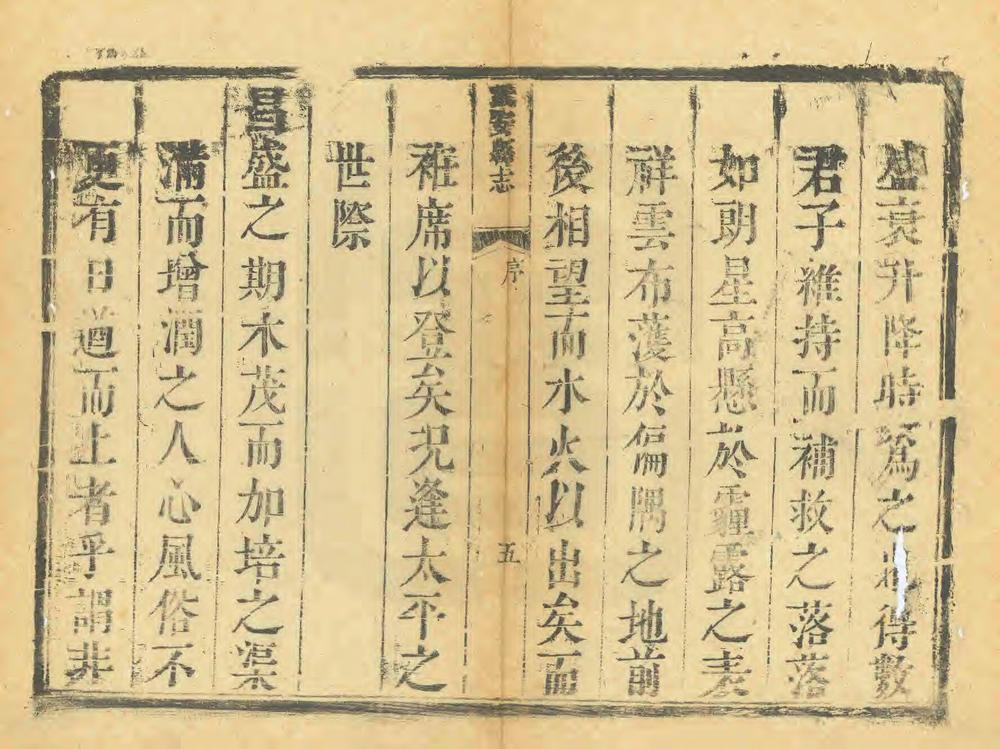 盛衰升降時爲之也得數
君子維持而補救之落落
如朗星高懸於霾露之表
祥雲布濩於偏隅之地前
後相望而水火以出矣而
安縣志 序 五
袵席以登矣况逢太平之
世際
昌盛之期木茂而加培之渠
滿而增潤之人心風俗不
更有日遒而上者乎謂非